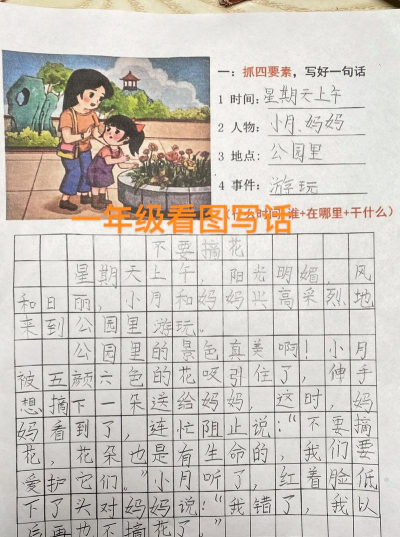 一：抓四要素，写好一句话
1 时间：星期天上午
2 人物：小月、妈妈
3 地点：公园里
4 事件：游玩
（什么时间+谁+在哪里+干什么）
一年级看图写话
不要摘花
星期天上午，阳光明媚，风
和日丽，小月和妈妈兴高采烈地
来到公园里游玩。
公园里的景色真美啊！小月
被五颜六色的花吸引住了，伸手
想摘下一朵送给妈妈，这时，妈
妈看到了，连忙阻止说：“不要摘
花，花朵也是有生命的，我们要
爱护它们。”小月听了，红着脸低
下了头对妈妈说：“我错了，我以
后再也不摘花了。”